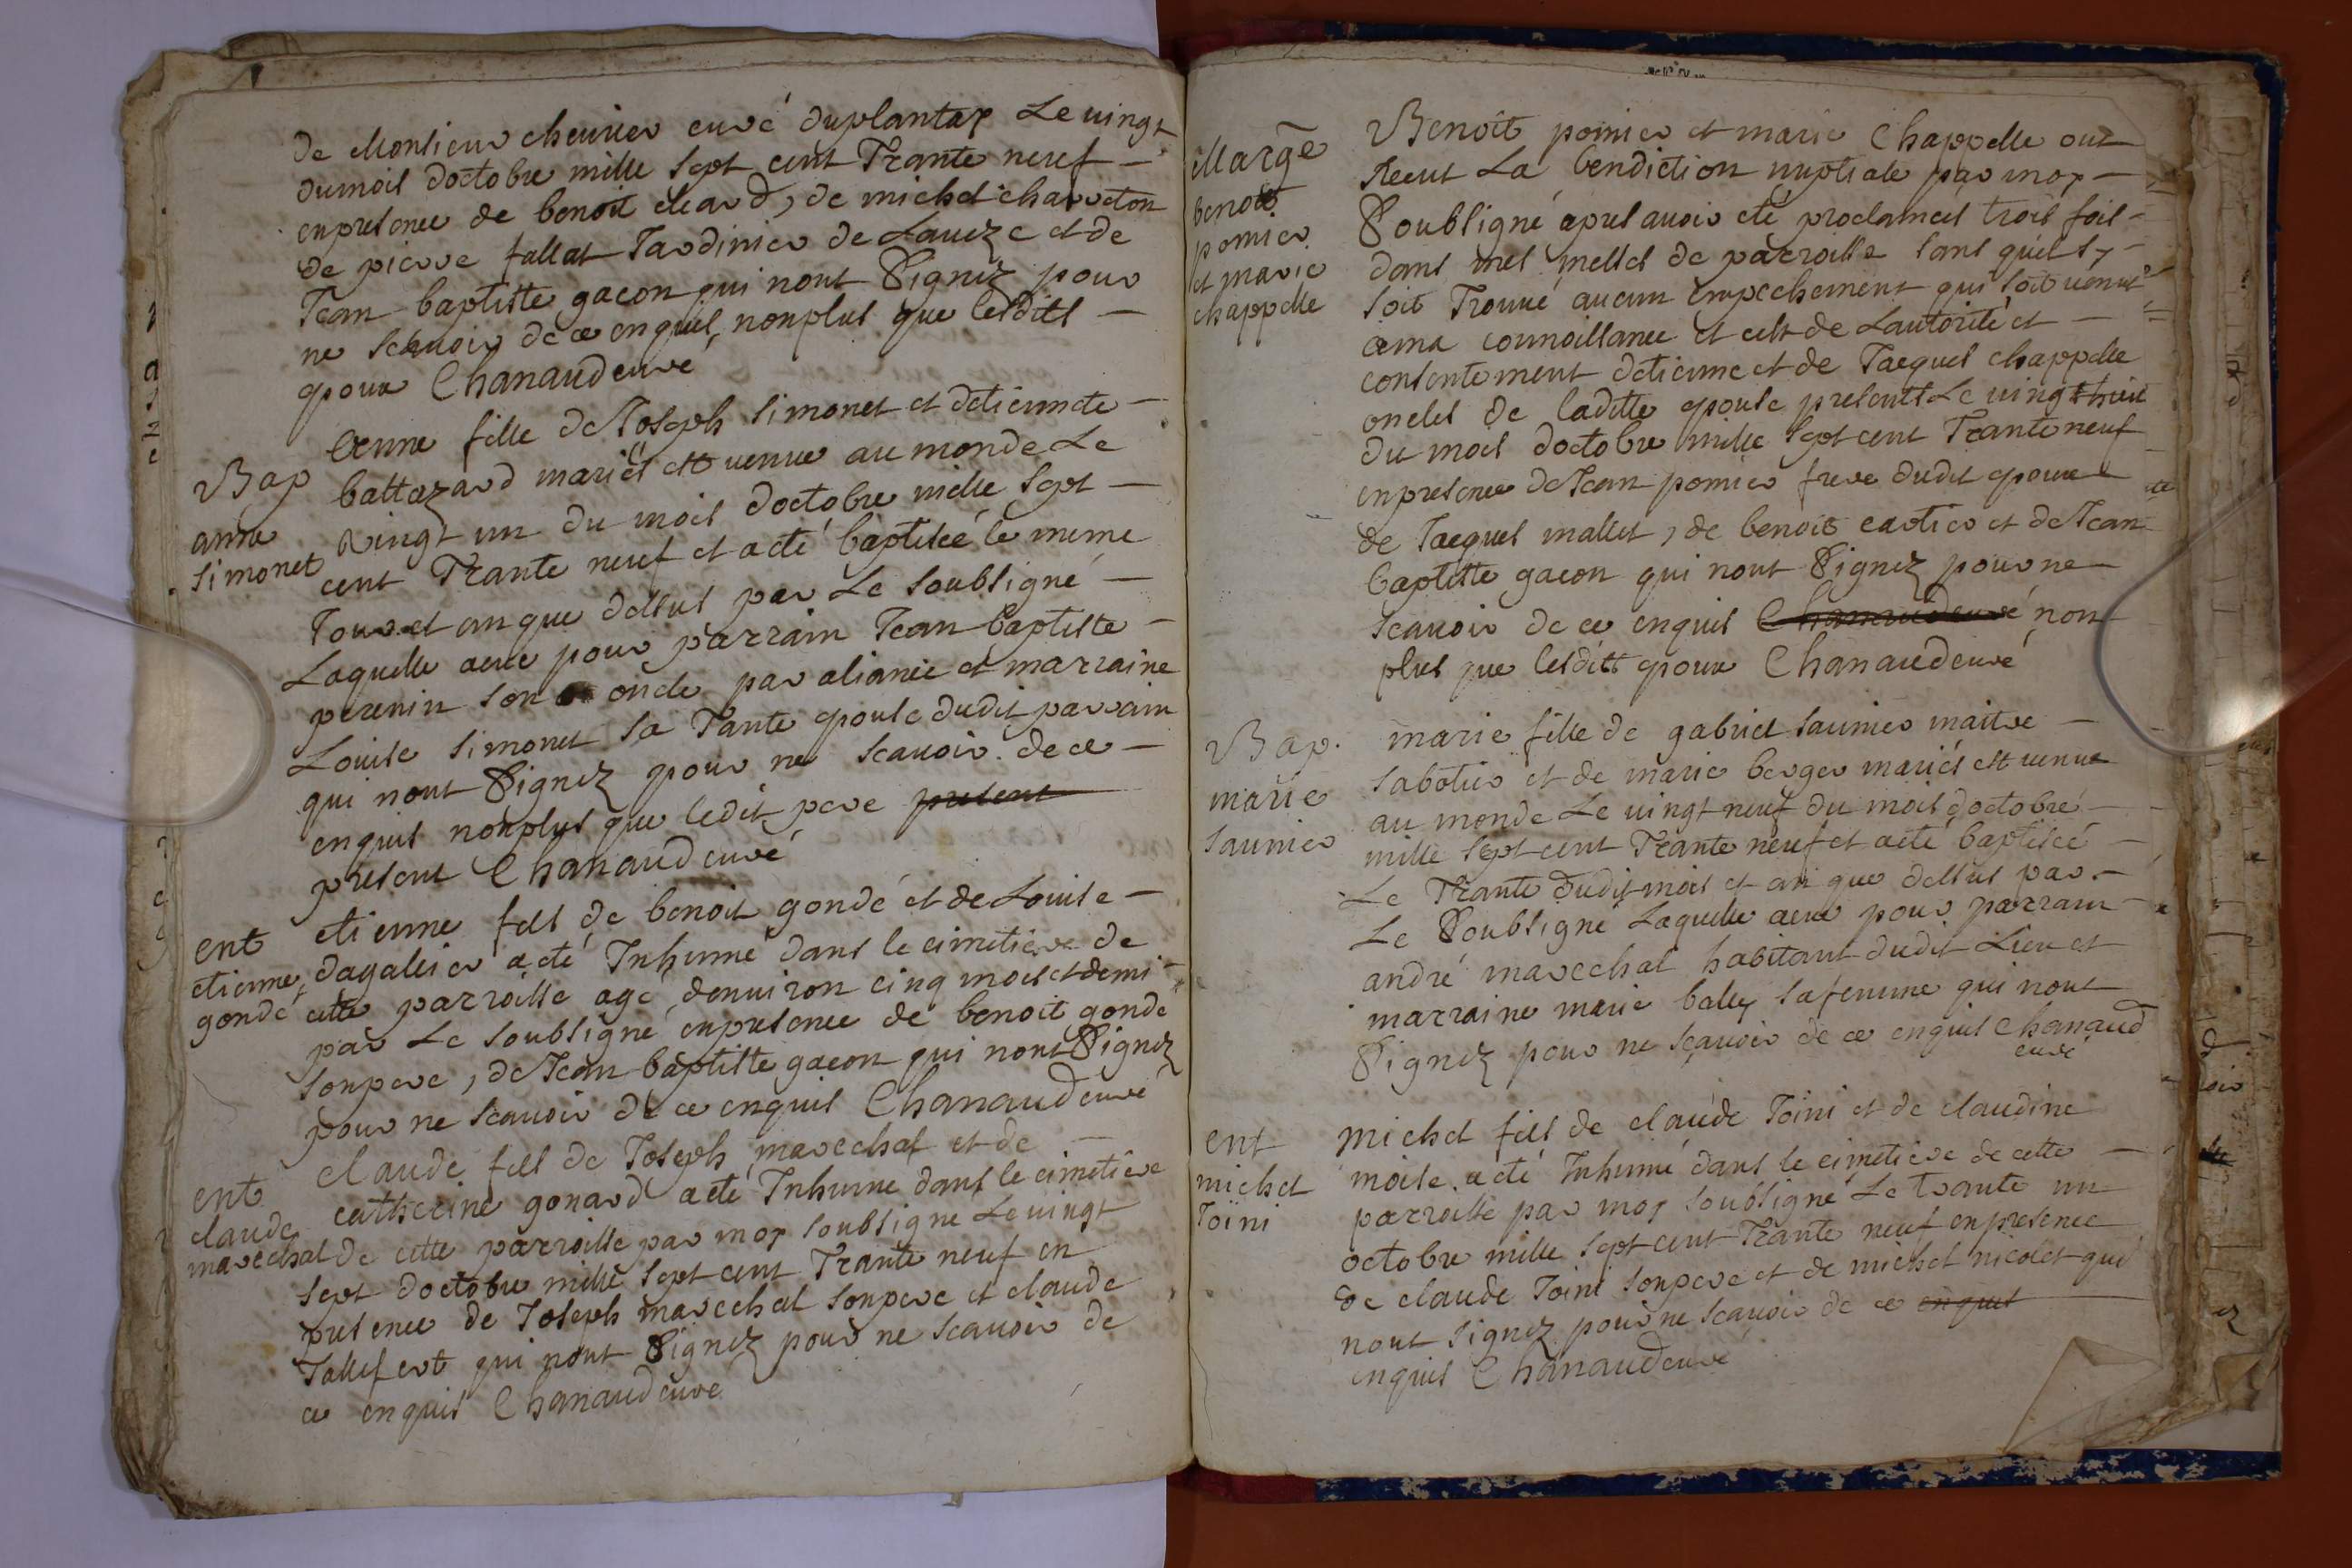 de Monsieur chevrier curé duplantay Le vingt
dumois doctobre mille sept cent Trante neuf
enpresence de benoit cleard, de michel charreton
de pierre fallat Jardinier de Laveze et de
Jean baptiste gacon qui nont Signéz pour
ne scavoir de ce enquis, nonplus que lesdits
epoux Chanaud curé
Bap
anne
simonet
Anne fille de Joseph simonet et detiennete
battazard mariés est venue au monde Le
vingt un du mois doctobre mille sept
cent Trante neuf et aété baptisée le meme
Jour et an que dessus par Le soubsigné
Laquelle aeue pour parrain Jean baptiste
perenin son oncle par aliance et marraine
Louise simonet sa Tante epouse dudit parrain
qui nont Signéz pour ne scavoir de ce
enquis nonplus que ledit pere present
present Chanaud curé
ent
etienne
gondé
etienne fils de benoit gondé et de Louise
dagallier aété Inhumé dans le cimetiere de
cette parroisse agé denviron cinq mois et demi
par Le soubsigné enpresence de benoit gondé
sonpere, de Jean baptiste gacon qui nont Signéz
pour ne scavoir de ce enquis Chanaud curé
ent
claude
marechal
claude fils de Joseph marechal et de
catherine gonard aété Inhume dans le cimetiere
de cette parroisse par moy soubsigne Le vingt
sept doctobre mille sept cent Trante neuf en
presence de Joseph marechal sonpere et claude
Tallifert qui nont Signéz pour ne scavoir de
ce enquis Chanaud curé
Marge
benoit
pomier
et marie
chappelle
Benoit pomier et marie Chappelle ont
Receut La bendiction nuptiale par moy
Soubsigné apres avoir eté proclamés trois fois
dans mes messes de parroisse sans quil sy
soit Trouvé aucun empechement qui soit venut
ama connoissance et cest de Lautorité et
consentement detienne et de Jacques chappelle
oncles de laditte epouse presents Le vingt huit
du mois doctobre mille sept cent Trante neuf
enpresence de Jean pomier frere dudit epoux
de Jacques mallet, de benoit cartier et de Jean
baptiste gacon qui nont Signéz pour ne
scavoir de ce enquis Chanaud curé non
plus que lesdits epoux Chanaud curé
Bap.
marie
saunier
marie fille de gabriel saunier maitre
sabotier et de marie berger mariés est venue
au monde Le vingt neuf du mois doctobre
mille sept cent Trante neuf et aété baptisée
Le Trante dudit mois et an que dessus par
Le Soubsigné Laquelle aeue pour parrain
andré marechal habitant dudit Lieu et
marraine marie bally safemme qui nont
Signéz pour ne scavoir de ce enquis Chanaud
curé
ent
michel
Toini
michel fils de claude Toini et de claudine
moise aété Inhumé dans le cimetiere de cette
parroisse par moy soubsigné Le trante un
octobre mille sept cent Trante neuf enpresence
de claude Toini sonpere et de michel nicolet qui
nont signéz pour ne scavoir de ce enquis
enquis Chanaud curé